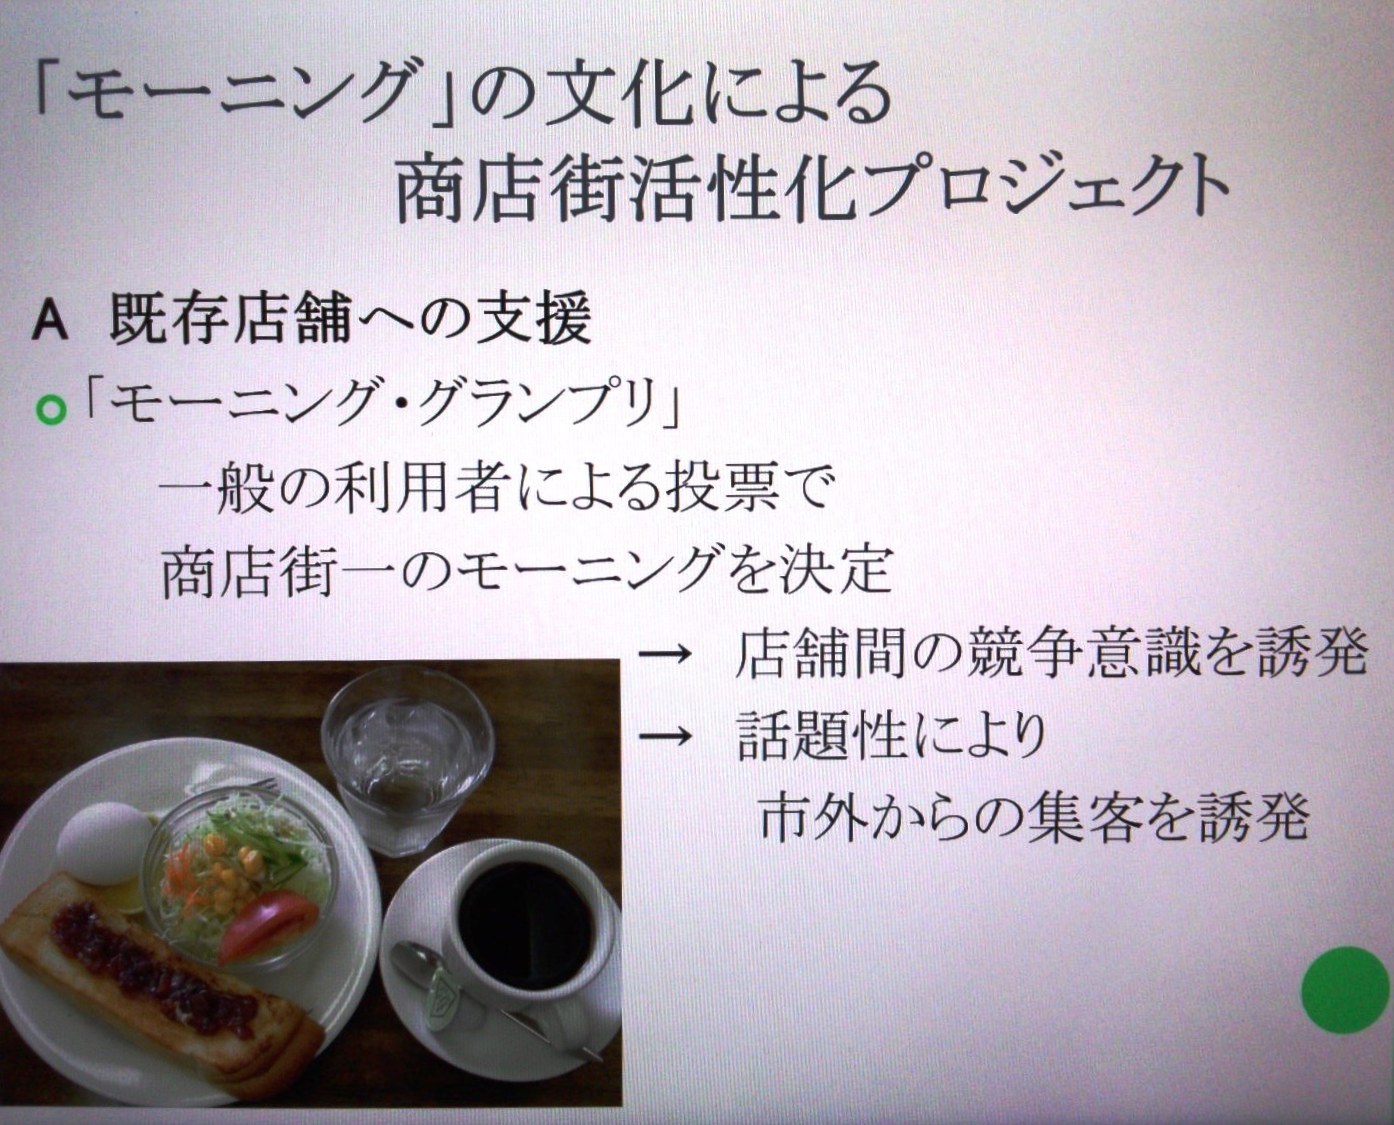 「モーニング」の文化による
商店街活性化プロジェクト
A 既存店舗への支援
「モーニング・グランプリ」
一般の利用者による投票で
商店街一のモーニングを決定
→ 店舗間の競争意識を誘発
→ 話題性により
市外からの集客を誘発